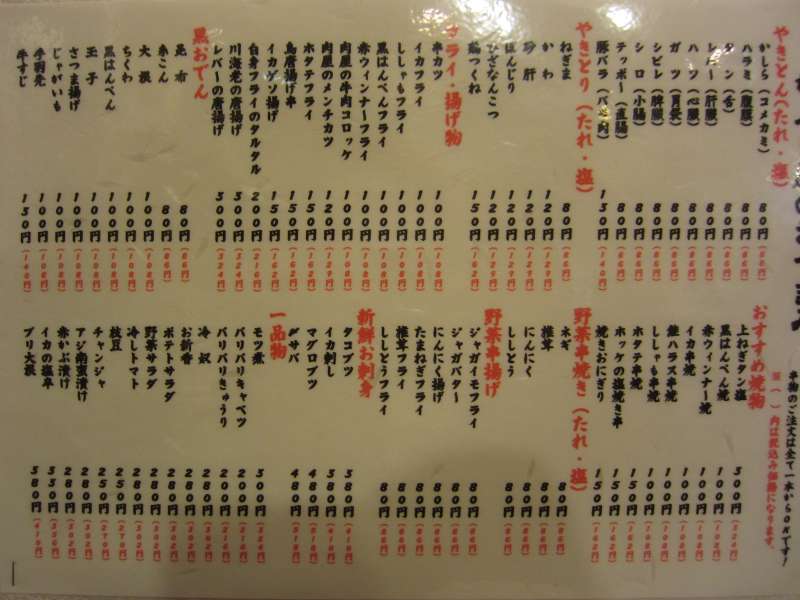 やきとん(たれ・塩)
かしら(コメカミ) 80円(86円)
ハラミ(腹膜) 80円(86円)
タン(舌) 80円(86円)
レバー(肝臓) 80円(86円)
ハツ(心臓) 80円(86円)
ガツ(胃袋) 80円(86円)
シビレ(脾臓) 80円(86円)
シロ(小腸) 80円(86円)
テッポー(直腸) 80円(86円)
豚バラ(バラ肉) 130円(140円)
やきとり(たれ・塩)
ねぎま 80円(86円)
かわ 120円(129円)
砂肝 120円(129円)
ぼんじり 120円(129円)
ひざなんこつ 120円(129円)
鶏つくね 150円(162円)
フライ・揚げ物
串カツ 100円(108円)
イカフライ 100円(108円)
ししゃもフライ 100円(108円)
黒はんぺんフライ 100円(108円)
赤ウィンナーフライ 100円(108円)
肉屋の牛肉コロッケ 100円(108円)
肉屋のメンチカツ 120円(129円)
ホタテフライ 150円(162円)
鳥唐揚げ串 150円(162円)
イカゲソ揚げ 150円(162円)
白身フライのタルタル 200円(216円)
川海老の唐揚げ 300円(324円)
レバーの唐揚げ 300円(324円)
黒おでん
昆布 80円(86円)
糸こん 80円(86円)
大根 100円(108円)
ちくわ 100円(108円)
黒はんぺん 100円(108円)
玉子 100円(108円)
さつま揚げ 100円(108円)
じゃがいも 100円(108円)
手羽先 100円(108円)
牛すじ 130円(140円)
串物のご注文は全て一本からOKです!
※( )内は税込み価格になります。
おすすめ焼物
上ねぎタン塩 300円(324円)
黒はんぺん焼 100円(108円)
赤ウィンナー焼 100円(108円)
イカ串焼 100円(108円)
鮭ハラス串焼 100円(108円)
ししゃも串焼 100円(108円)
ホタテ串焼 150円(162円)
ホッケの塩焼き串 150円(162円)
焼きおにぎり 150円(162円)
野菜串焼き(たれ・塩)
ネギ 80円(86円)
椎茸 80円(86円)
にんにく 80円(86円)
ししとう 80円(86円)
野菜串揚げ
ジャガイモフライ 80円(86円)
ジャガバター 80円(86円)
にんにく揚げ 80円(86円)
たまねぎフライ 80円(86円)
椎茸フライ 80円(86円)
ししとうフライ 80円(86円)
新鮮お刺身
タコブツ 380円(410円)
イカ刺し
マグロブツ 480円(518円)
〆サバ 480円(518円)
一品物
モツ煮 300円(324円)
バリバリキャベツ 200円(216円)
バリバリきゅうり 200円(216円)
冷奴 280円(302円)
お新香 280円(302円)
ポテトサラダ 280円(302円)
野菜サラダ 280円(302円)
冷しトマト 280円(302円)
枝豆 250円(270円)
チャンジャ 250円(270円)
アジ南蛮漬け 280円(302円)
赤かぶ漬け 280円(302円)
イカの塩辛 330円(356円)
ブリ大根 380円(410円)